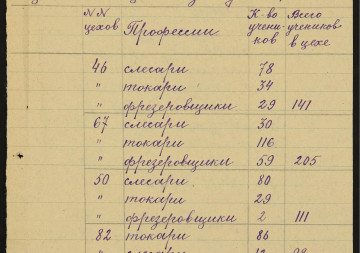 NN цехов Профессии К-во учеников Всего учеников в цехе
46 слесари 78
" токари 34
" фрезеровщики 29 141
67 слесари 30
" токари 116
" фрезеровщики 59 205
50 слесари 80
" токари 29
" фрезеровщики 2 111
82 токари 86